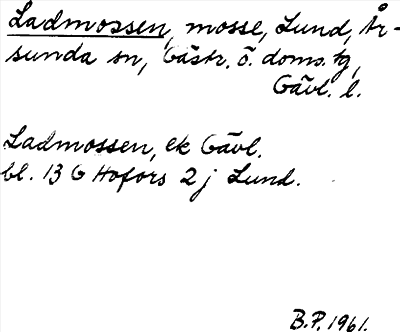 Ladmossen, mosse, Lund, År-
sunda sn, Gästr. ö. doms. tg,
Gävl. l.
Ladmossen, ek Gävl.
bl. 13 G Hofors 2 j Lund.
B.P. 1961.